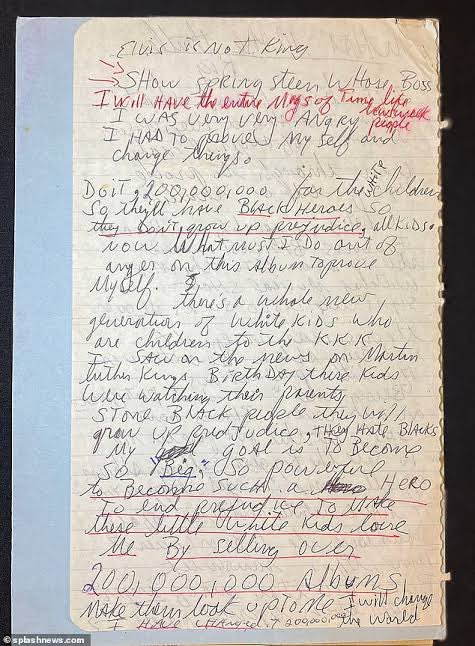 Elvis is Not King
Show Springsteen Whose Boss
I will HAVE the entire Mags of Time life
newsweek
people
I was very very Angry
I HAD to prove My self and
change things
Do it, 200,000,000 for the children
white
So they'll have BLACK Heroes so
they don't grow up prejudice, all KIDS
now What must I Do out of
anger on this Album To prove
Myself. theres a whole new
generation of white KIDS who
are children to the KKK
I SAW on the news on Martin
Luther Kings BirthDAY these Kids
were watching their parents
STONE BLACK people they will
grow up prejudice, THEY HATE BLACKS
My goal is To Become
So "Big," So powerful
to Become SUCH a HERO
To end prejudice To MAKE
these little white Kids love
Me By Selling over
200,000,000 AlbuMs
MAKe them look up to Me I will change
the World
I HAVE changed it 200,000,000
© splashnews.com